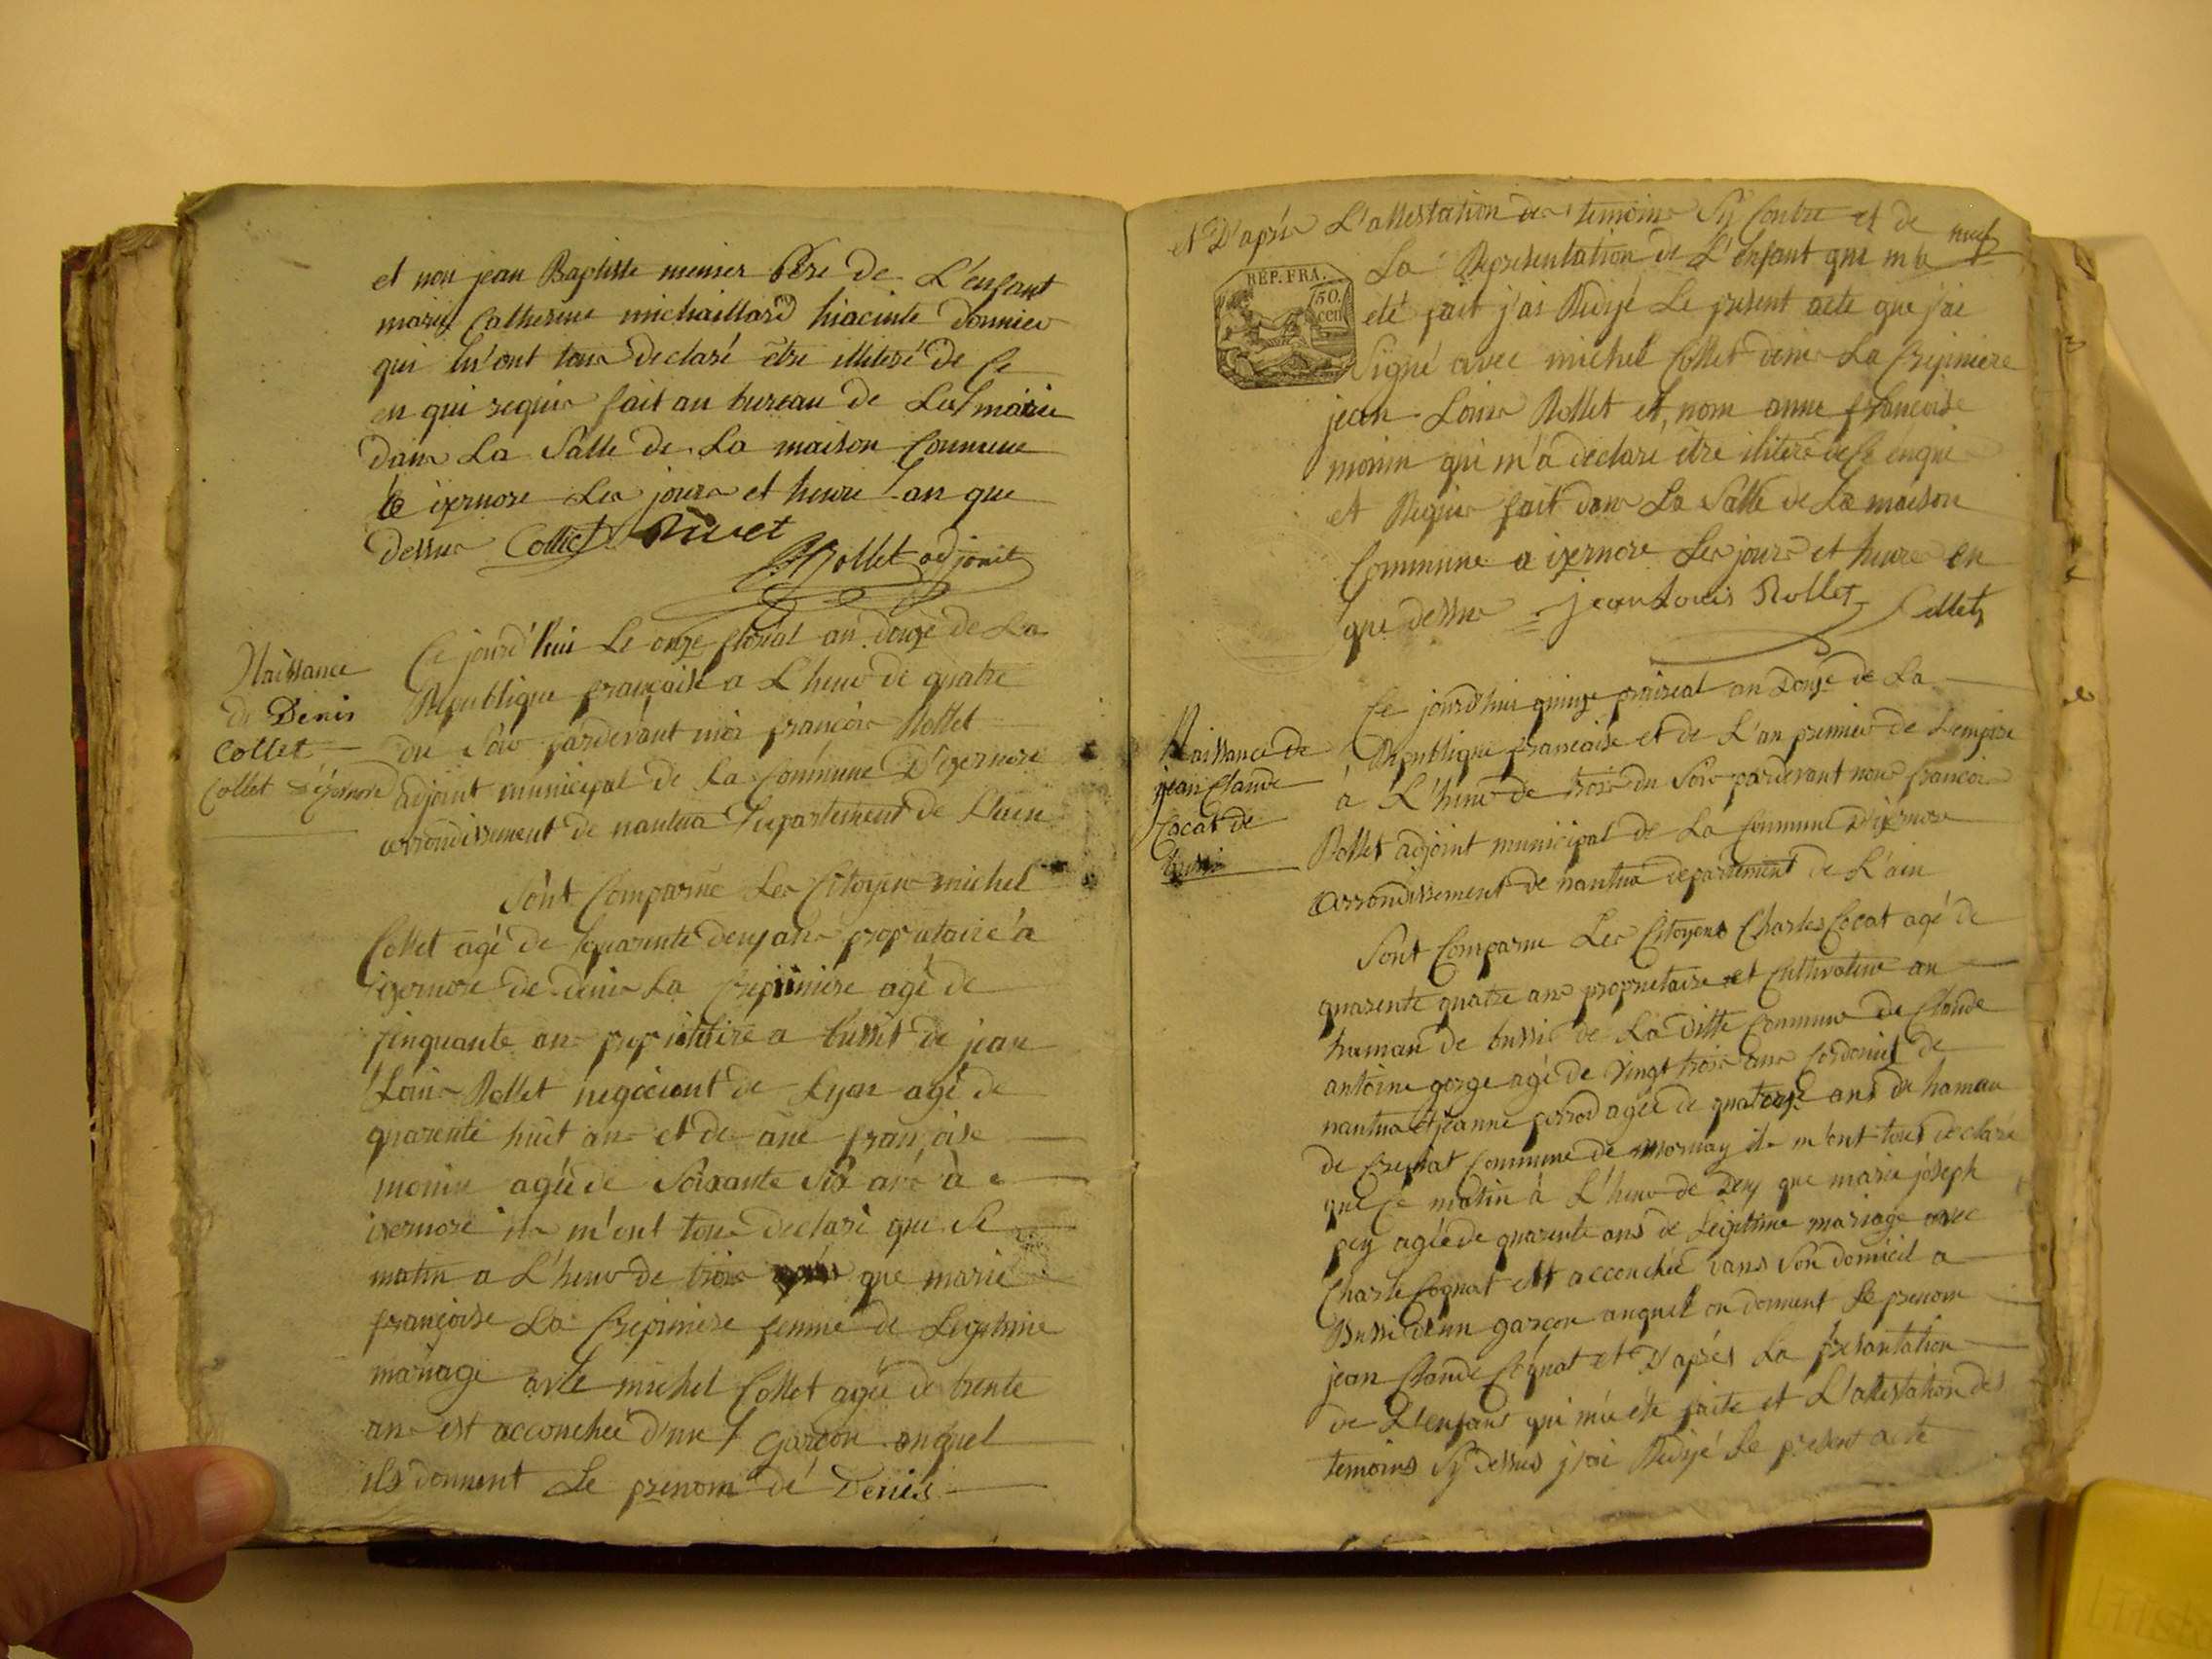 et non jean Baptiste meunier Père de L'enfant
marie Catherine michaillard hiacinte
qui m'ont tous declaré être illiteré de ce
en qui requis fait au bureau de La mairie
dans La Salle de La maison Commune
ixernore Les jours et heure an que
dessus Collet Rivet
Rollet adjoint
Naissance
de Denis
Collet
Collet d'ixernore
Ce jourd'hui Le onze floréal an douze de La
Republique française a L'heure de quatre
du Soir pardevant moi françois Rollet
adjoint municipal de La Commune D'ixernore
arrondissement de nantua Departement de L'ain
Sont Comparue Les Citoyens michel
Collet agé de quarente deux ans propriétaire a
ixernore de denis La Crepiniere agé de
cinquante ans propriétaire a bussi de jean
Louis Rollet negociant de Lyon agé de
quarente huit ans et de ane françoise
monin agée de Soixante Six ans à
ixernore ils m'ont tous declaré que Ce
matin a L'heure de trois que marie
françoise La Crepiniere femme de Legitime
mariage avec michel Collet agée de trente
ans est accouchée d'une garçon auquel
ils donnent Le prenom de Denis
et D'après L'attestation des temoins Sy Contre et de
La Representation de L'enfant qui m'a
REP. FRA.
50.
cen
eté fait j'ai Redijé Le present acte que j'ai
Signé avec michel Collet denis La Crepiniere
jean Louis Rollet et, nom anne françoise
monin qui m'a declaré être iliteré de ce enquis
et Requis fait dans La Salle de La maison
Commune a ixernore Les jours et heures en
que dessus jean Louis Rollet Collet
Naissance de
jean Claude
Cocat de
bussi
Ce jourd'hui quinze praireal an Douze de La
Republique francaise et de L'an premier de Lempire
à L'heure de trois du Soir pardevant nous francois
Rollet adjoint municipal de La Commune D'ixernore
arrondissement de nantua departement de L'ain
Sont Comparue Les Citoyens Charles Cocat agé de
quarente quatre ans proprietaire et Cultivateur au
hameau de bussi de La ditte Commune de Claude
antoine gorge agé de Vingt trois ans Cordonier de
nantua et jeanne perrod agée de quatorze ans du hameau
de Crepiat Commune de mornay ils m'ont tous declaré
que Ce matin à L'heure de Deux que marie joseph
pey agée de quarente ans de Legitime mariage avec
Charle Cognat est accouchée dans Son domicil a
Bussi d'un garçon auquel on donnent Le prenom
jean Claude Cognat et D'après La presantation
de L'enfant qui m'a été faite et L'attestation des
temoins Sy dessus j'ai Redijé Le present acte